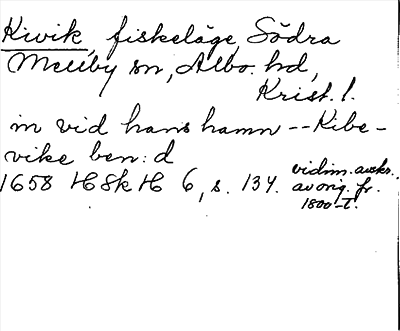 Kivik, fiskeläge, Södra
Mellby sn, Albo hd,
Krist. l.
in vid hans hamn -- Kibe-
vike ben: d
1658 HSkH 6, s. 134. vidim. avskr.
av orig. fr.
1800-t.